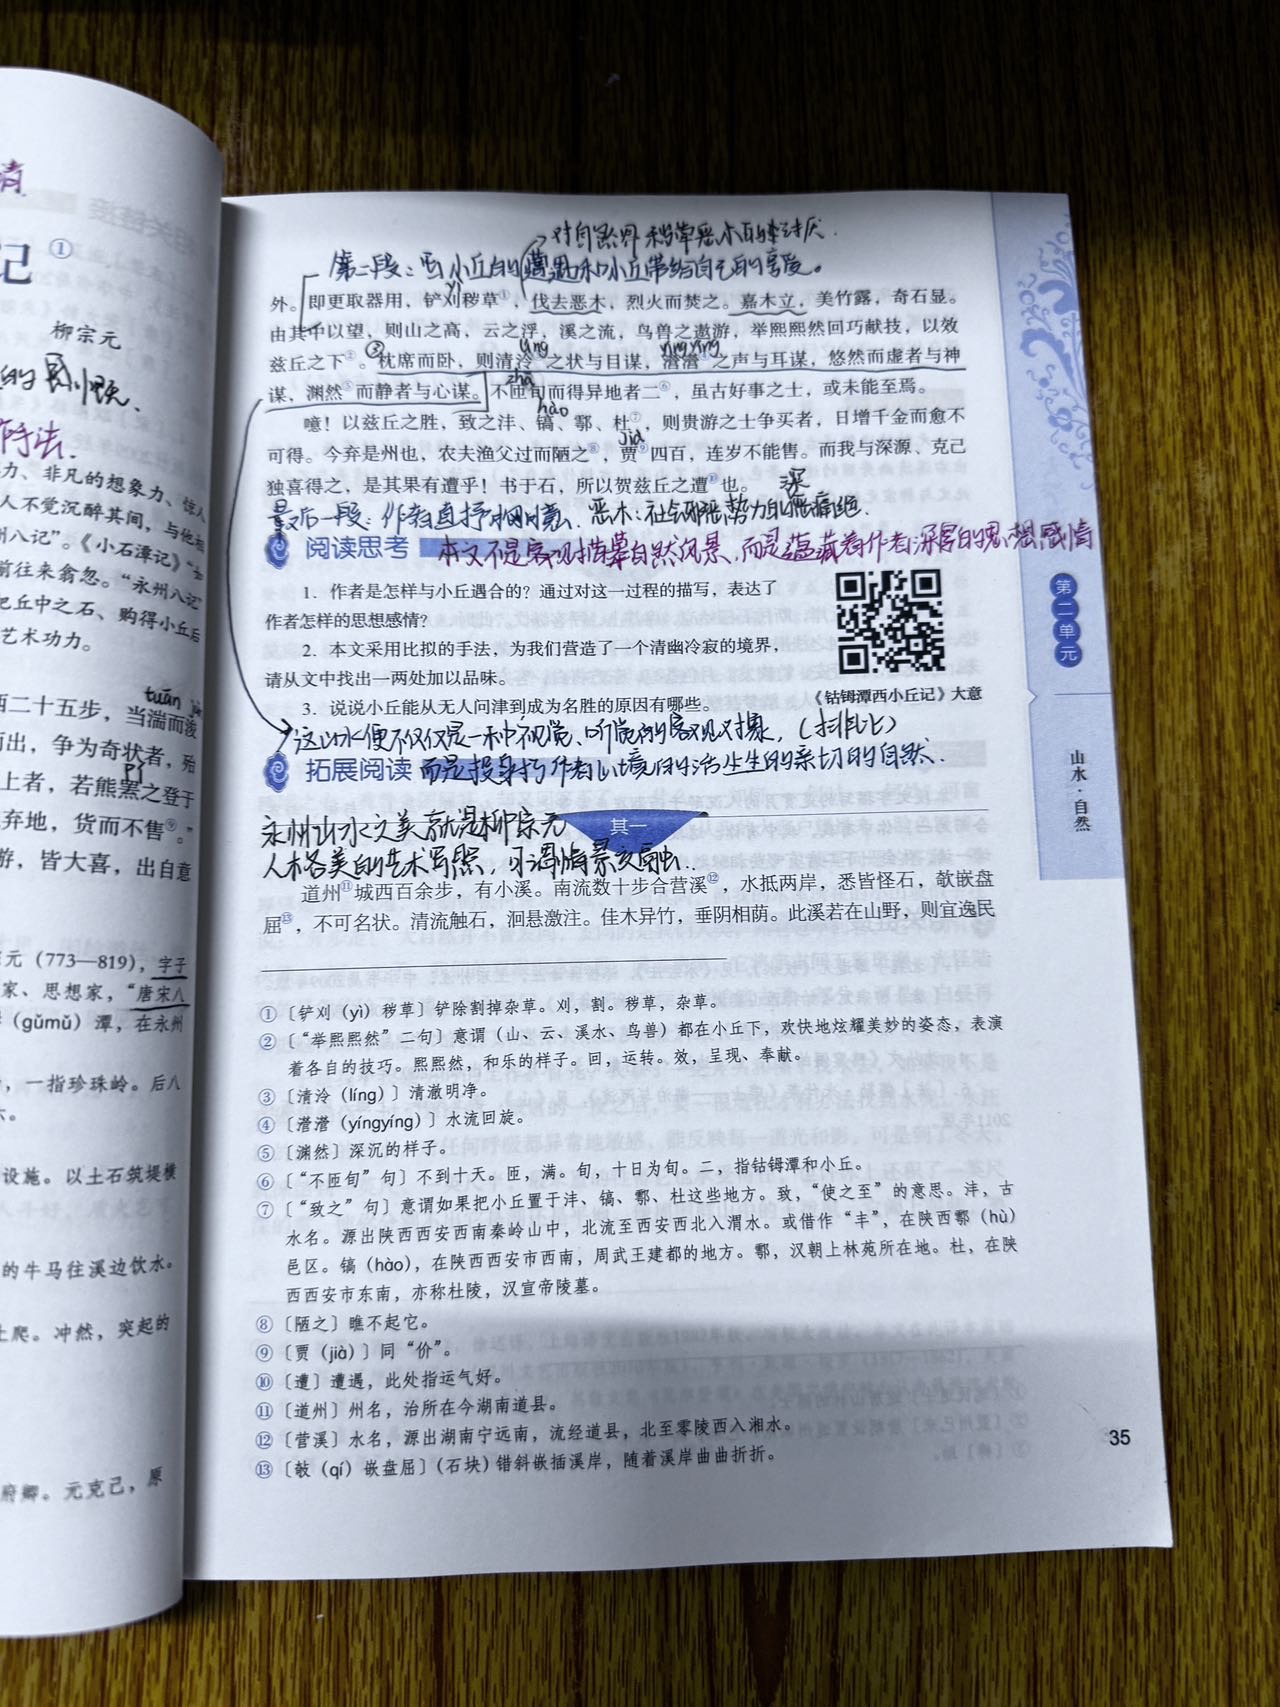 记①
柳宗元
力、非凡的想象力、惊人
人不觉沉醉其间，与他相
州八记”。《小石潭记》“
前往来翕忽。“永州八记”
把丘中之石、购得小丘后
艺术功力。
西二十五步，当湍而浚
而出，争为奇状者，殆
上者，若熊罴之登于
弃地，货而不售⑨。”
游，皆大喜，出自意
元（773—819），字子
家、思想家，“唐宋八
（gǔmǔ）潭，在永州
，一指珍珠岭。后八
设施。以土石筑堤横
的牛马往溪边饮水。
上爬。冲然，突起的
府卿。元克己，原
对自然界秽草恶木的讨厌.
第二段：写小丘的景和小丘带给自己的享受。
外。即更取器用，铲刈秽草①，伐去恶木，烈火而焚之。嘉木立，美竹露，奇石显。
yì
由其中以望，则山之高，云之浮，溪之流，鸟兽之遨游，举熙熙然回巧献技，以效
líng yíng yíng
兹丘之下②。枕席而卧，则清泠③之状与目谋，瀯瀯④之声与耳谋，悠然而虚者与神
谋，渊然⑤而静者与心谋。不匝旬而得异地者二⑥，虽古好事之士，或未能至焉。
zhā
hào
噫！以兹丘之胜，致之沣、镐、鄠、杜⑦，则贵游之士争买者，日增千金而愈不
jià
可得。今弃是州也，农夫渔父过而陋之⑧，贾⑨四百，连岁不能售。而我与深源、克己
独喜得之，是其果有遭乎！书于石，所以贺兹丘之遭⑩也。
深
最后一段：作者直抒胸臆. 恶木：社会邪恶势力的深恶痛绝.
阅读思考 本文不是客观描摹自然风景，而是蕴藏着作者深层的思想感情
1. 作者是怎样与小丘遇合的？通过对这一过程的描写，表达了
作者怎样的思想感情？
2. 本文采用比拟的手法，为我们营造了一个清幽冷寂的境界，
请从文中找出一两处加以品味。
3. 说说小丘能从无人问津到成为名胜的原因有哪些。
《钴鉧潭西小丘记》大意
这山水便不仅仅是一种视觉、听觉的客观对象，（排比）
拓展阅读 而是投射了作者心境的活生生的亲切的自然.
永州山水之美就是柳宗元
其一
人格美的艺术写照，可谓情景交融.
道州⑪城西百余步，有小溪。南流数十步合营溪⑫，水抵两岸，悉皆怪石，欹嵌盘
屈⑬，不可名状。清流触石，洄悬激注。佳木异竹，垂阴相荫。此溪若在山野，则宜逸民
①〔铲刈（yì）秽草〕铲除割掉杂草。刈，割。秽草，杂草。
②〔“举熙熙然”二句〕意谓（山、云、溪水、鸟兽）都在小丘下，欢快地炫耀美妙的姿态，表演
着各自的技巧。熙熙然，和乐的样子。回，运转。效，呈现、奉献。
③〔清泠（líng）〕清澈明净。
④〔瀯瀯（yíngyíng）〕水流回旋。
⑤〔渊然〕深沉的样子。
⑥〔“不匝旬”句〕不到十天。匝，满。旬，十日为旬。二，指钴鉧潭和小丘。
⑦〔“致之”句〕意谓如果把小丘置于沣、镐、鄠、杜这些地方。致，“使之至”的意思。沣，古
水名。源出陕西西安西南秦岭山中，北流至西安西北入渭水。或借作“丰”，在陕西鄠（hù）
邑区。镐（hào），在陕西西安市西南，周武王建都的地方。鄠，汉朝上林苑所在地。杜，在陕
西西安市东南，亦称杜陵，汉宣帝陵墓。
⑧〔陋之〕瞧不起它。
⑨〔贾（jià）〕同“价”。
⑩〔遭〕遭遇，此处指运气好。
⑪〔道州〕州名，治所在今湖南道县。
⑫〔营溪〕水名，源出湖南宁远南，流经道县，北至零陵西入湘水。
⑬〔欹（qí）嵌盘屈〕（石块）错斜嵌插溪岸，随着溪岸曲曲折折。
第二单元
山水·自然
35